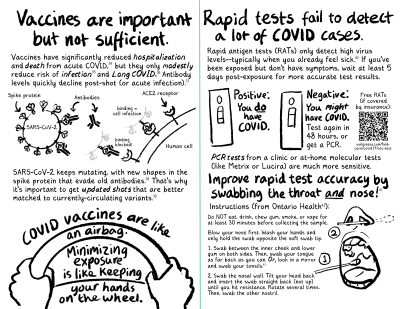 Vaccines are important
but not sufficient.
Vaccines have significantly reduced hospitalization
and death from acute COVID, but they only modestly
reduce risk of infection and Long COVID. Antibody
levels quickly decline post-shot (or acute infection).
Spike protein
Antibodies
ACE2 receptor
binding =
cell infection
SARS-CoV-2
binding
blocked!
Human cell
SARS-CoV-2 keeps mutating, with new shapes in the
spike protein that evade old antibodies. That's why
it's important to get updated shots that are better
matched to currently-circulating variants.
COVID vaccines are like
an airbag.
Minimizing
exposure
is like keeping
your hands
on the wheel.
Rapid tests fail to detect
a lot of COVID cases.
Rapid antigen tests (RATs) only detect high virus
levels—typically when you already feel sick. If you've
been exposed but don't have symptoms, wait at least 5
days post-exposure for more accurate test results.
Positive:
You do
have
COVID.
Negative:
You might
have
COVID.
Test again in
48 hours, or
get a PCR.
Free RATs
(if covered
by insurance):
PCR tests from a clinic or at-home molecular tests
(like Metrix or Lucira) are much more sensitive.
Improve rapid test accuracy by
swabbing the throat and nose!
Instructions (from Ontario Health):
Do NOT eat, drink, chew gum, smoke, or vape for
at least 30 minutes before collecting the sample.
Blow your nose first. Wash your hands and
only hold the swab opposite the soft swab tip.
1. Swab between the inner cheek and lower
gum on both sides. Then, swab your tongue
as far back as you can. Or, look in a mirror
and swab your tonsils.
2. Swab the nasal wall. Tilt your head back
and insert the swab straight back (not up)
until you hit resistance. Rotate several times.
Then, swab the other nostril.
2
1